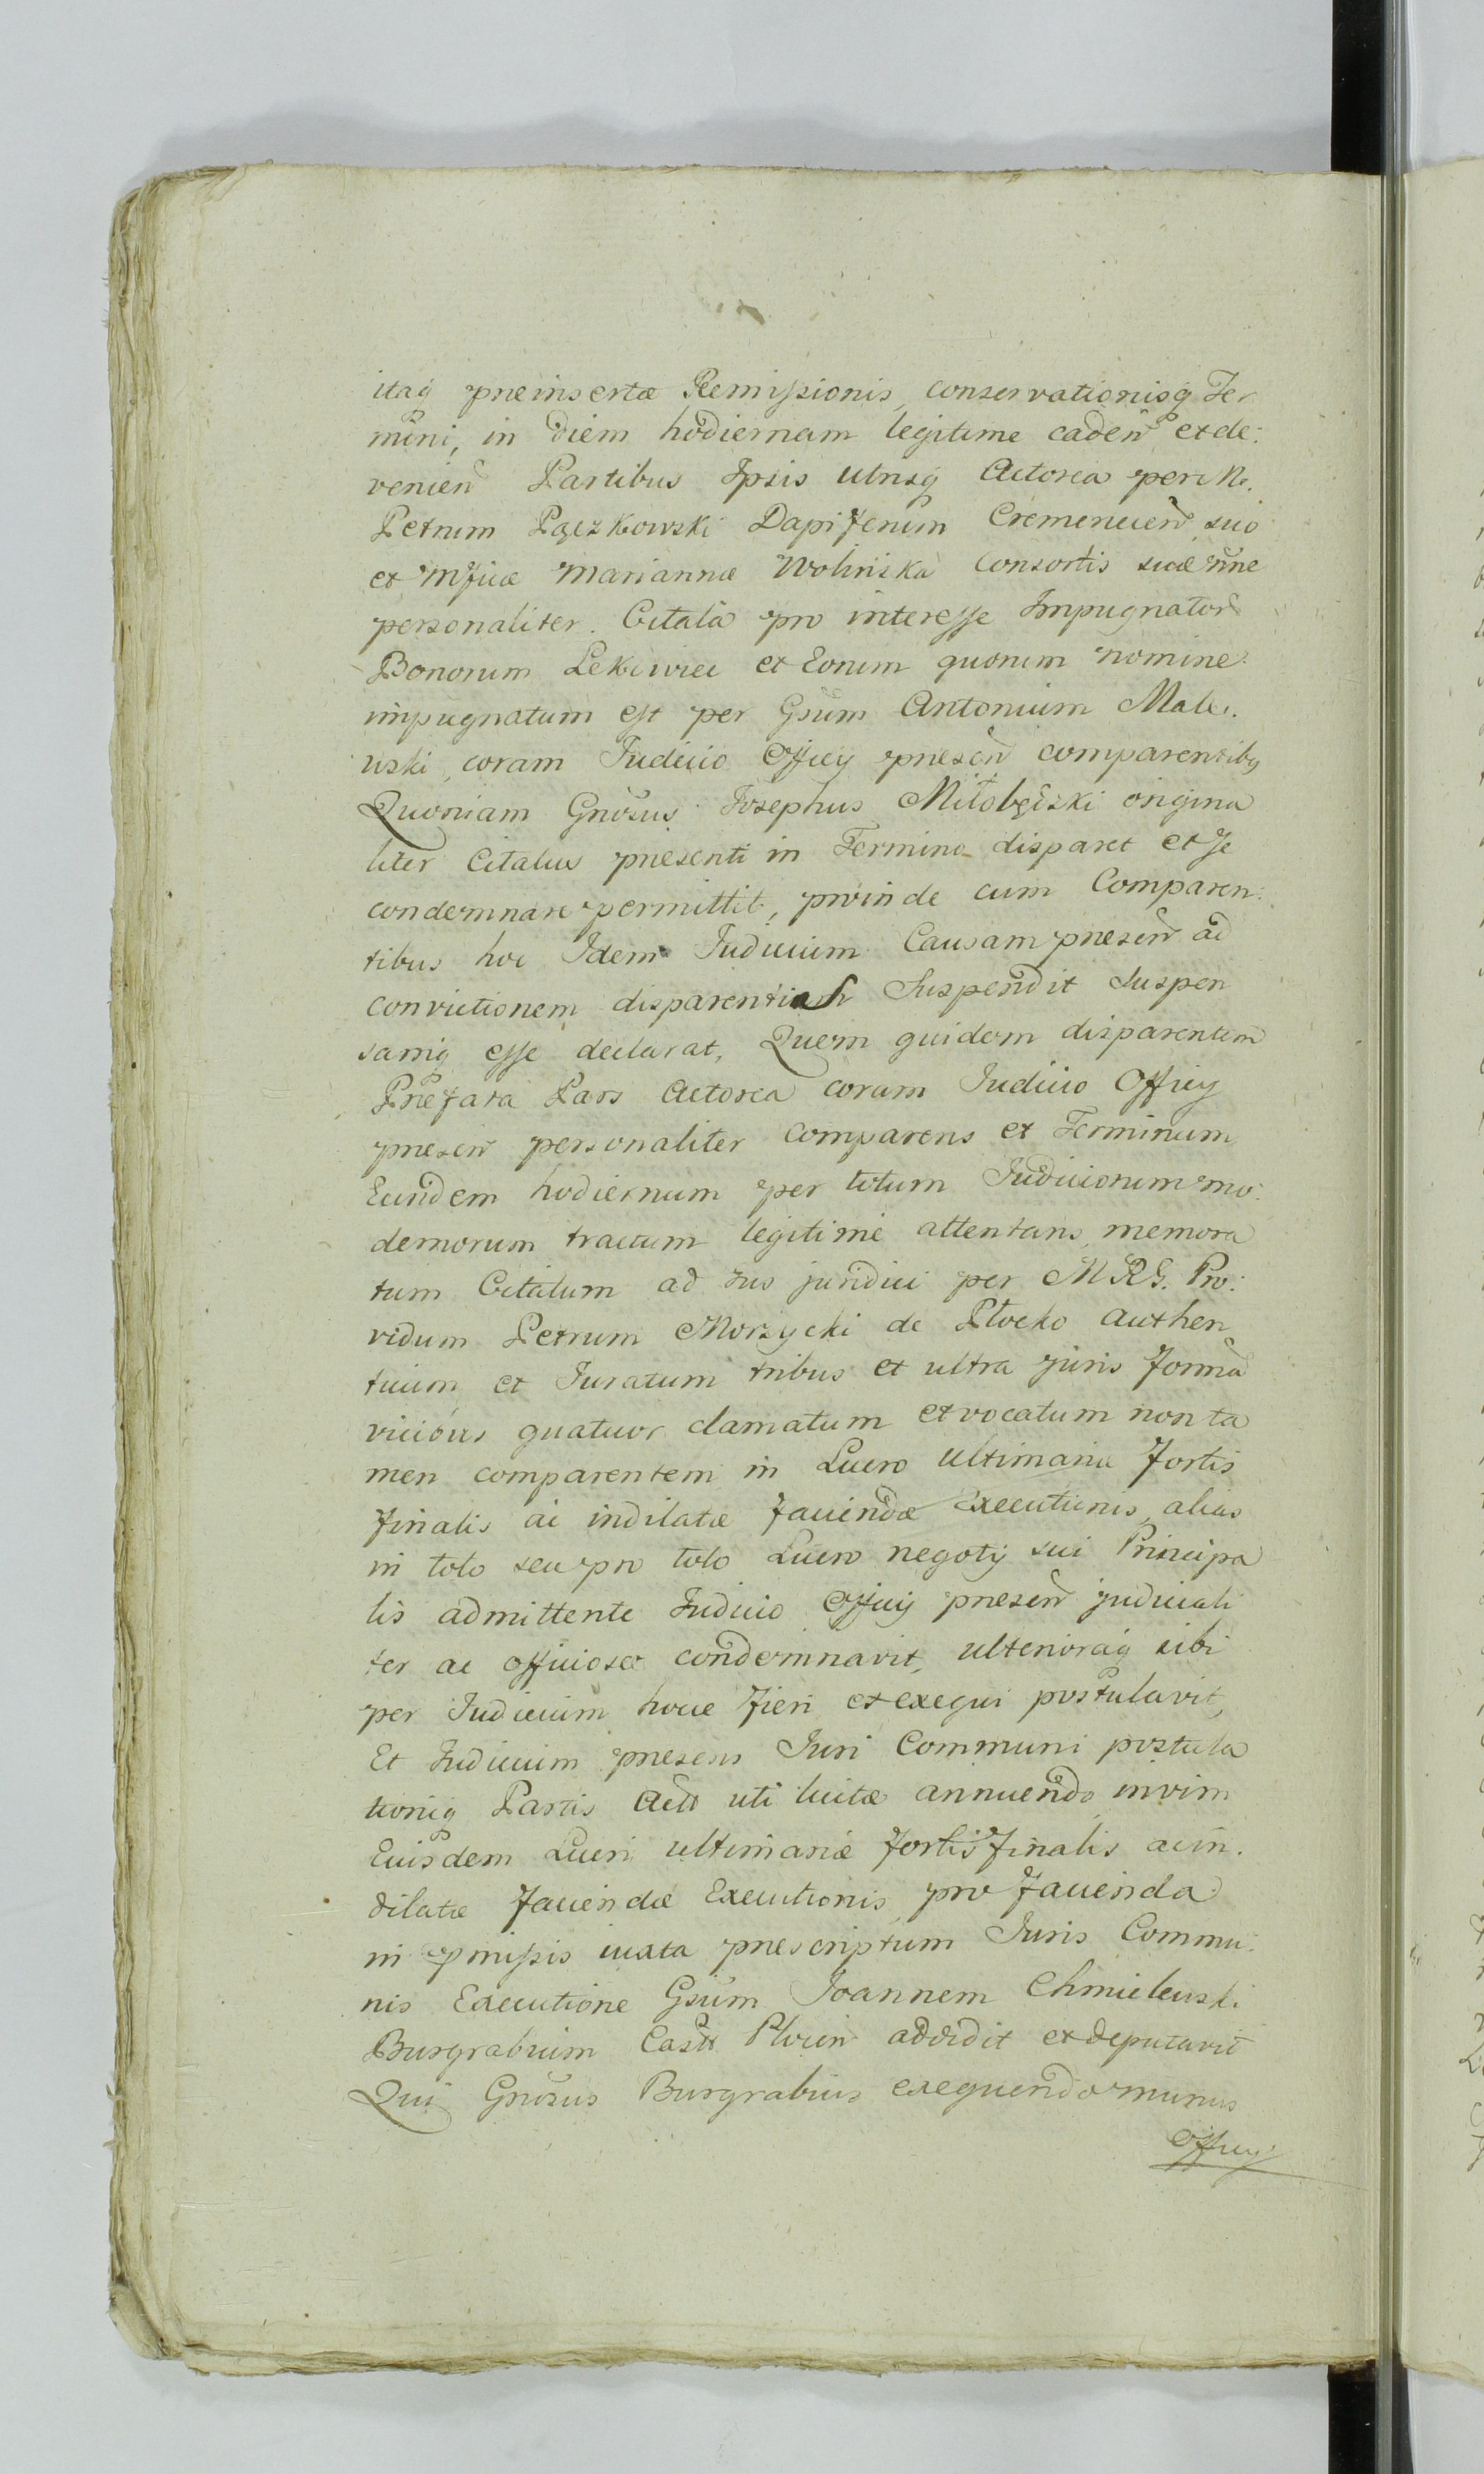 itaq preinsertæ Remissionis, conservationisq Ter
mini, in diem hodiernam legitime caden et de:
venien Partibus Ipsis utrisq Actorea per M.
Petrum Pączkowski Dapiferum Cremenecen suo
et Mficæ Mariannæ Wolinska Consortis suæ nne
personaliter. Citata pro interesse Impugnator
Bonorum Lekowiec et Eorum quorum nomine
impugnatum est per Gsum Antonium Male.
uski, coram Judicio Officy presen comparentibq
Quoniam Gnosus Josephus Miłobędzki origina
liter Citatus presenti in Termino disparet et se
condemnare permittit, proinde cum Comparen:
tibus hoc Idem Judicium Causam presen ad
convictionem disparentis Suspendit Suspen
samq esse declarat, Quem quidem disparentem
Prefata Pars Actorea coram Judicio Officy
presen personaliter comparens et Terminum
Eundem hodiernum per totum Judiciorum mo:
dernorum tractum legitime attentans, memora
tum Citatum ad Jus juridici per M R G. Pro:
vidum Petrum Morzycki de Płocko authen
ticum et Juratum tribus et ultra juris forma
vicibus quatuor clamatum et vocatum non ta
men comparentem in Lucro Ultimariæ fortis
finalis ac indilatæ faciendæ Executionis, alias
in toto seu pro toto Lucro negotij sui Principa
lis admittente Judicio Officij presen judiciali
ter ac officiose condemnavit, ulterioraq sibi
per Judicium hocce fieri et exequi postulavit,
Et Judicium presens Juri Communi postula
tioniq Partis Act uti licitæ annuendo, in vim
Eiusdem Lucri ultimariæ fortis finalis ac in.
dilatæ faciendæ Executionis, pro facienda
in pmissis iuxta prescriptum Juris Commu:
nis Executione Gsum Joannem Chmielewski
Burgrabium Castr Plocen addidit et deputavit
Qui Gnosus Burgrabius exequendo munus
Officy